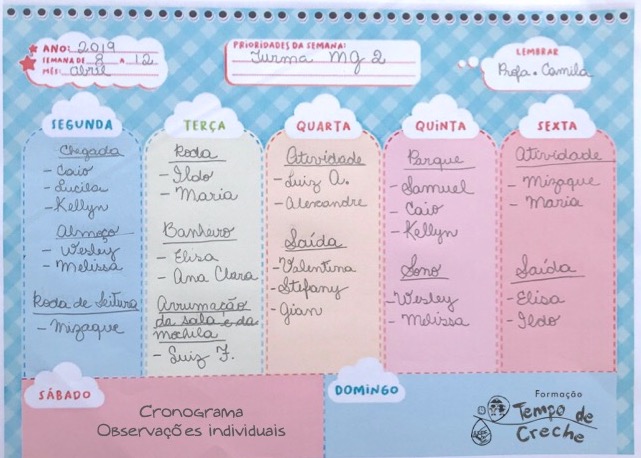 ANO: 2019
SEMANA DE 8 A 12
MÊS: abril
PRIORIDADES DA SEMANA:
Turma MG 2
LEMBRAR
Profa. Camila
SEGUNDA
Chegada
- Caio
- Lucila
- Kellyn
Almoço
- Wesley
- Melissa
Roda de leitura
- Mizaque
TERÇA
Roda
- Ildo
- Maria
Banheiro
- Elisa
- Ana Clara
Arrumação
da sala e da
mochila
- Luiz F.
QUARTA
Atividade
- Luiz A.
- Alexandre
Saída
- Valentina
- Stefany
- Gian
QUINTA
Parque
- Samuel
- Caio
- Kellyn
Sono
- Wesley
- Melissa
SEXTA
Atividade
- Mizaque
- Maria
Saída
- Elisa
- Ildo
SÁBADO
Cronograma
Observações individuais
DOMINGO
Formação
Tempo de
Creche